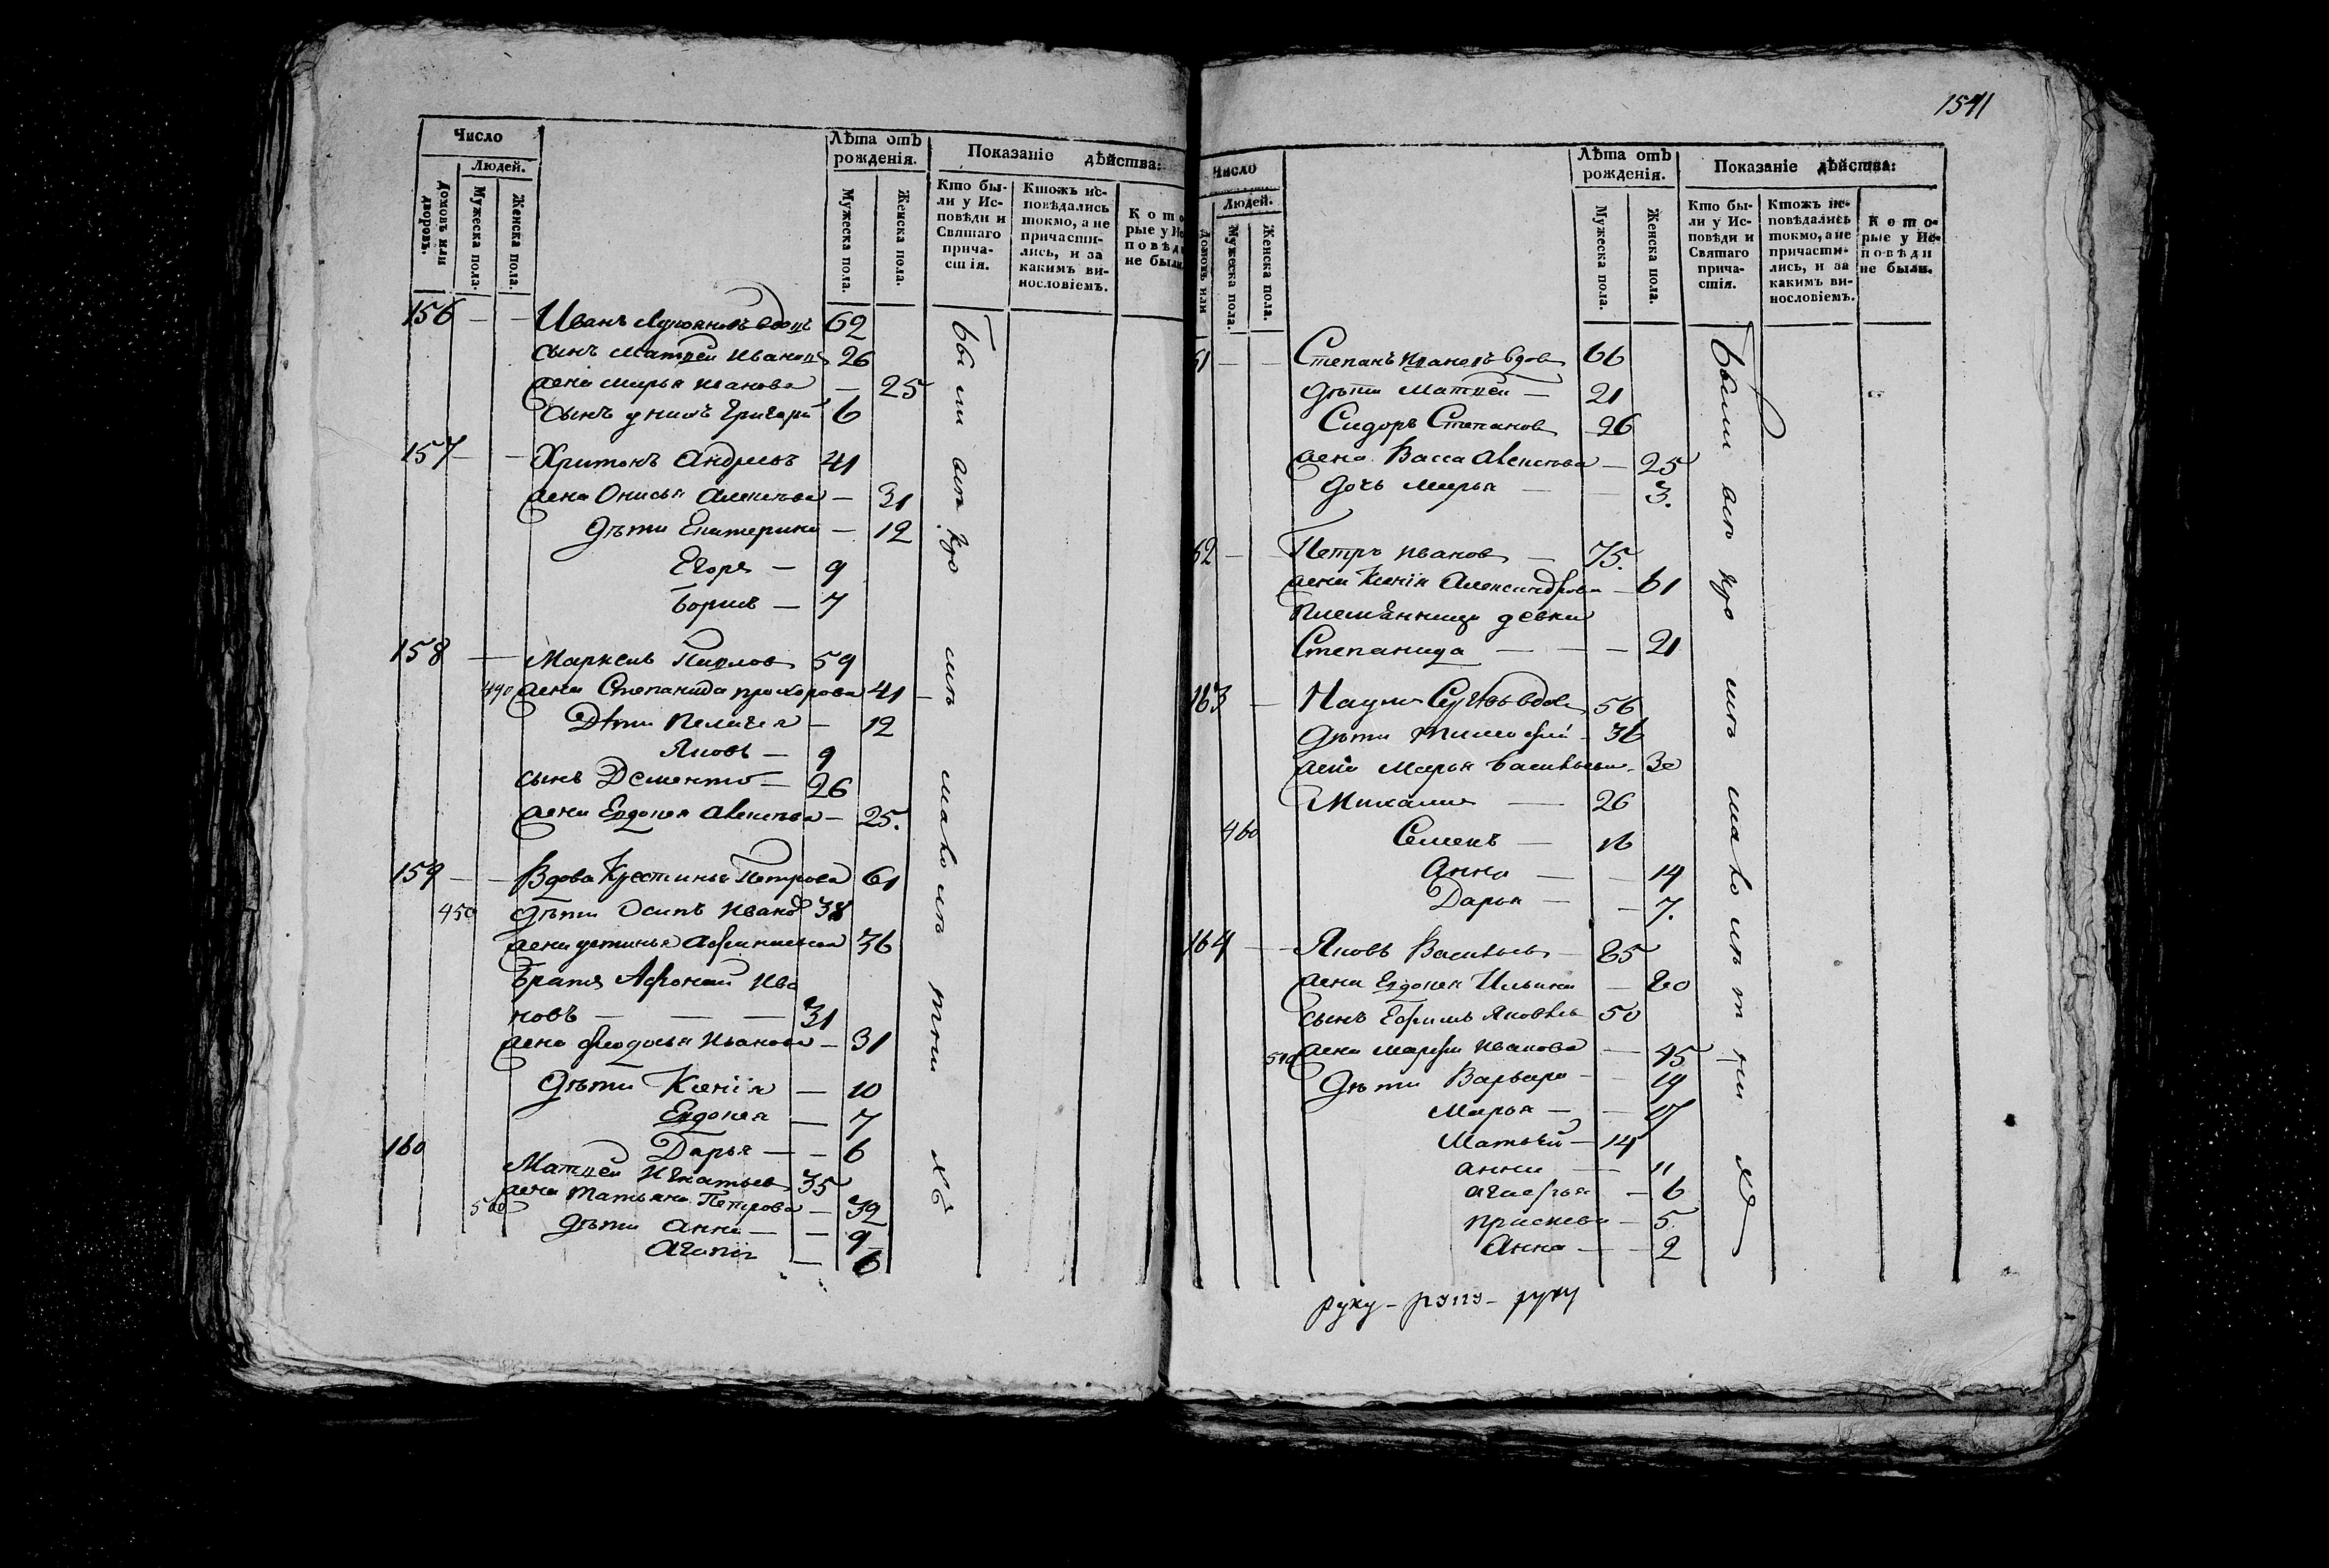 Число
Людей.
Домовъ или дворовъ.
Мужеска пола.
Женска пола.
Лѣта отъ рожденія.
Мужеска пола.
Женска пола.
Показаніе дѣйства:
Кто бы-
ли у Ис-
повѣди и
Святаго
прича-
стія.
Ктожъ ис-
повѣдались
токмо, а не
причасти-
лись, и за
какимъ ви-
нословіемъ.
Кото
рые у Ис
повѣди
не были
156 — — Иванъ вдовъ 62
сынъ Матвей Иванов 26
жена Марья Иванова — 25
сынъ у нихъ Григорий 6
157 — — Харитонъ Андреевъ 41
жена Онисья Алексеева — 31
дѣти Екатерина — 12
Егоръ — 9
Борисъ — 7
158 — Маркелъ Павлов 59
440 жена Степанида прохорова 41 —
Дѣти Пелагея — 12
Яковъ — 9
сынъ Дементо — 26
жена Евдокея Алексеева — 25.
159 — — Вдова Крестинья Петрова 61
450 дѣти Осипъ Иванов 38
жена устинья Афанасьева 36
братъ Афонасй Ива
новъ — — — 31
жена Феодосья Иванова — 31
дѣти Ксенія — 10
Евдокея — 7
Дарья — — 6
160 Матвей Игнатьев 35
500 жена Татьяна Петрова — 32
дѣти Анна — — 9
Агапия — 6
были
1541
Число
Людей.
Домовъ или
Мужеска пола.
Женска пола.
Лѣта отъ рожденія.
Мужеска пола.
Женска пола.
Показаніе дѣйства:
Кто бы-
ли у Ис-
повѣди и
Святаго
прича-
стія.
Ктожъ ис-
повѣдались
токмо, а не
причасти-
лись, и за
какимъ ви-
нословіемъ.
Кото-
рые у Ис-
повѣди
не были.
61 — — Степанъ Ивановъ вдов 66
дѣти Матвей — 21
Сидоръ Степанов 26
жена Васса Алексеева — 25
дочь Марья — — 3.
62 — — Петръ Иванов — 75.
жена Ксенія Александрова — 61
племянница девка
Степанида — — — 21
163 — Наумъ вдов 56
дѣти Тимофей — 36
жена Марья Васильева — 30
Михаила — 26
460 Семенъ — 16
Анна — — 14
Дарья — — 7.
164 — Яковъ Васильев — 85
жена Евдокея Ильина — 80
сынъ Ефимъ Яковлев 50
510 жена Марфа Иванова — 45
дѣти Варвара — — 19
Марья — — 17
Матвей — 14
Анна — — 11
— 6
прасковья — 5.
Анна — — 2
были
руку — руку